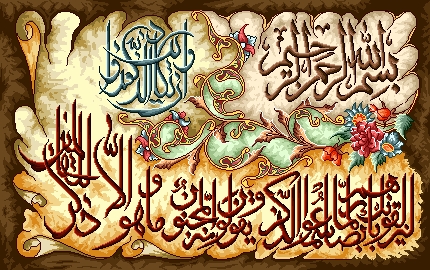 بسم الله الرحمن الرحيم
وان يكاد الذين كفروا
ليزلقونك بابصارهم لما سمعوا الذكر و يقولون انه لمجنون و ما هو الا ذكر للعالمين